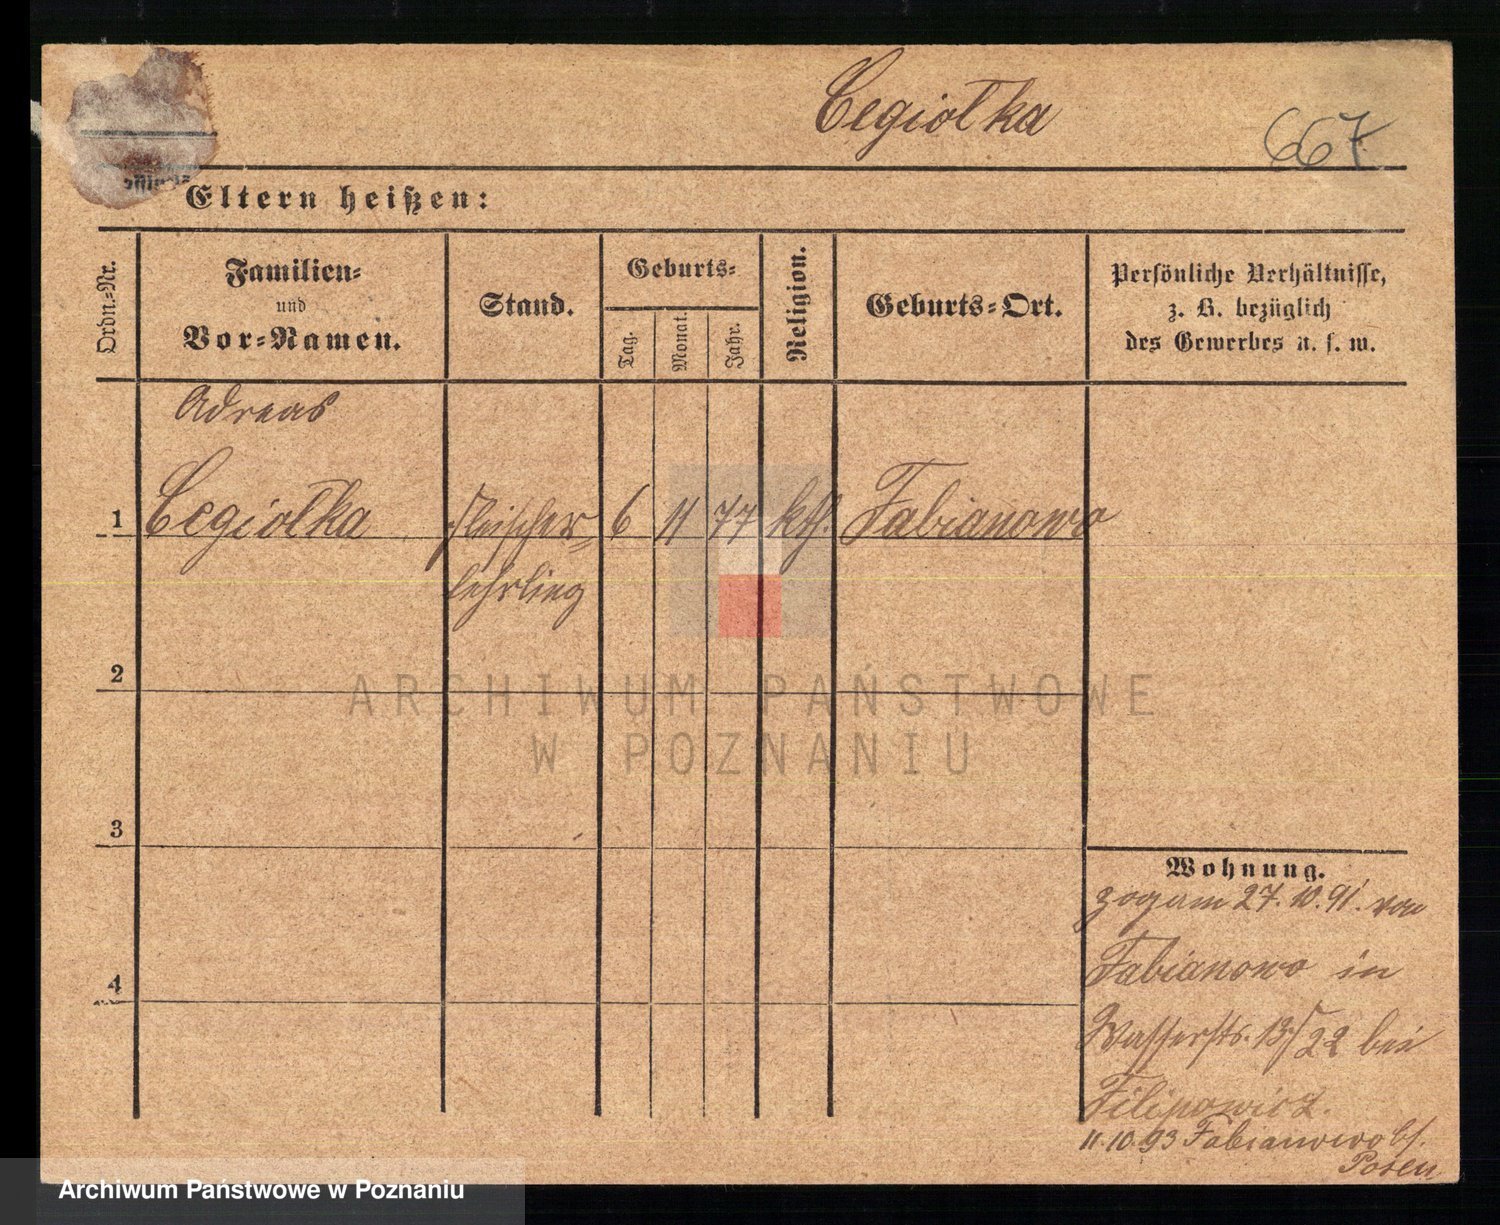 Cegiołka
667
Eltern heißen:
Ordn.-Nr.
Familien-
und
Vor-Namen.
Stand.
Geburts-
Tag.
Monat.
Jahr.
Religion.
Geburts-Ort.
Persönliche Verhältnisse,
z. B. bezüglich
des Gewerbes u. s. w.
Adreas
1 Cegiołka Fleischer= 6 11 77 kth. Fabianowo
lehrling
2
3
4
Wohnung.
zog am 27.10.91. von
Fabianowo in
Wasserstr. 13/22 bei
Filipowicz.
11.10.93 Fabianowo b/.
Posen
ARCHIWUM PAŃSTWOWE
W POZNANIU
Archiwum Państwowe w Poznaniu